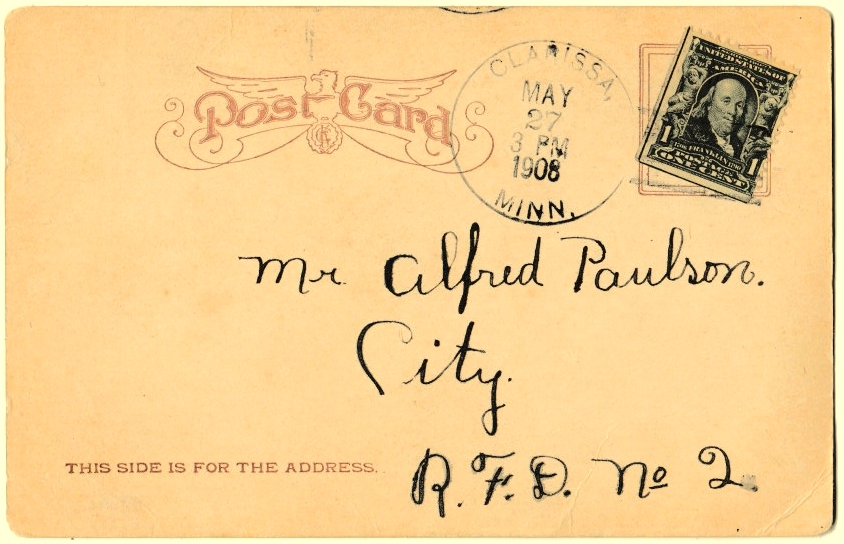 Post Card
CLARISSA,
MAY
27
3 PM
1908
MINN.
UNITED STATES OF
AMERICA
1 1706 FRANKLIN 1790 1
POSTAGE
ONE CENT
Mr Alfred Paulson.
City.
R.F.D. No 2.
THIS SIDE IS FOR THE ADDRESS.